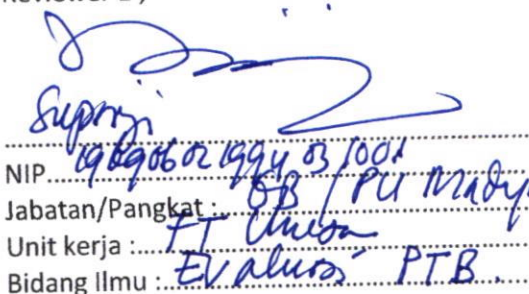 Supriyi
NIP. 196906021994031001
Jabatan/Pangkat : GB / PU Madya
Unit kerja : FT Unesa
Bidang Ilmu : Evaluasi PTB.